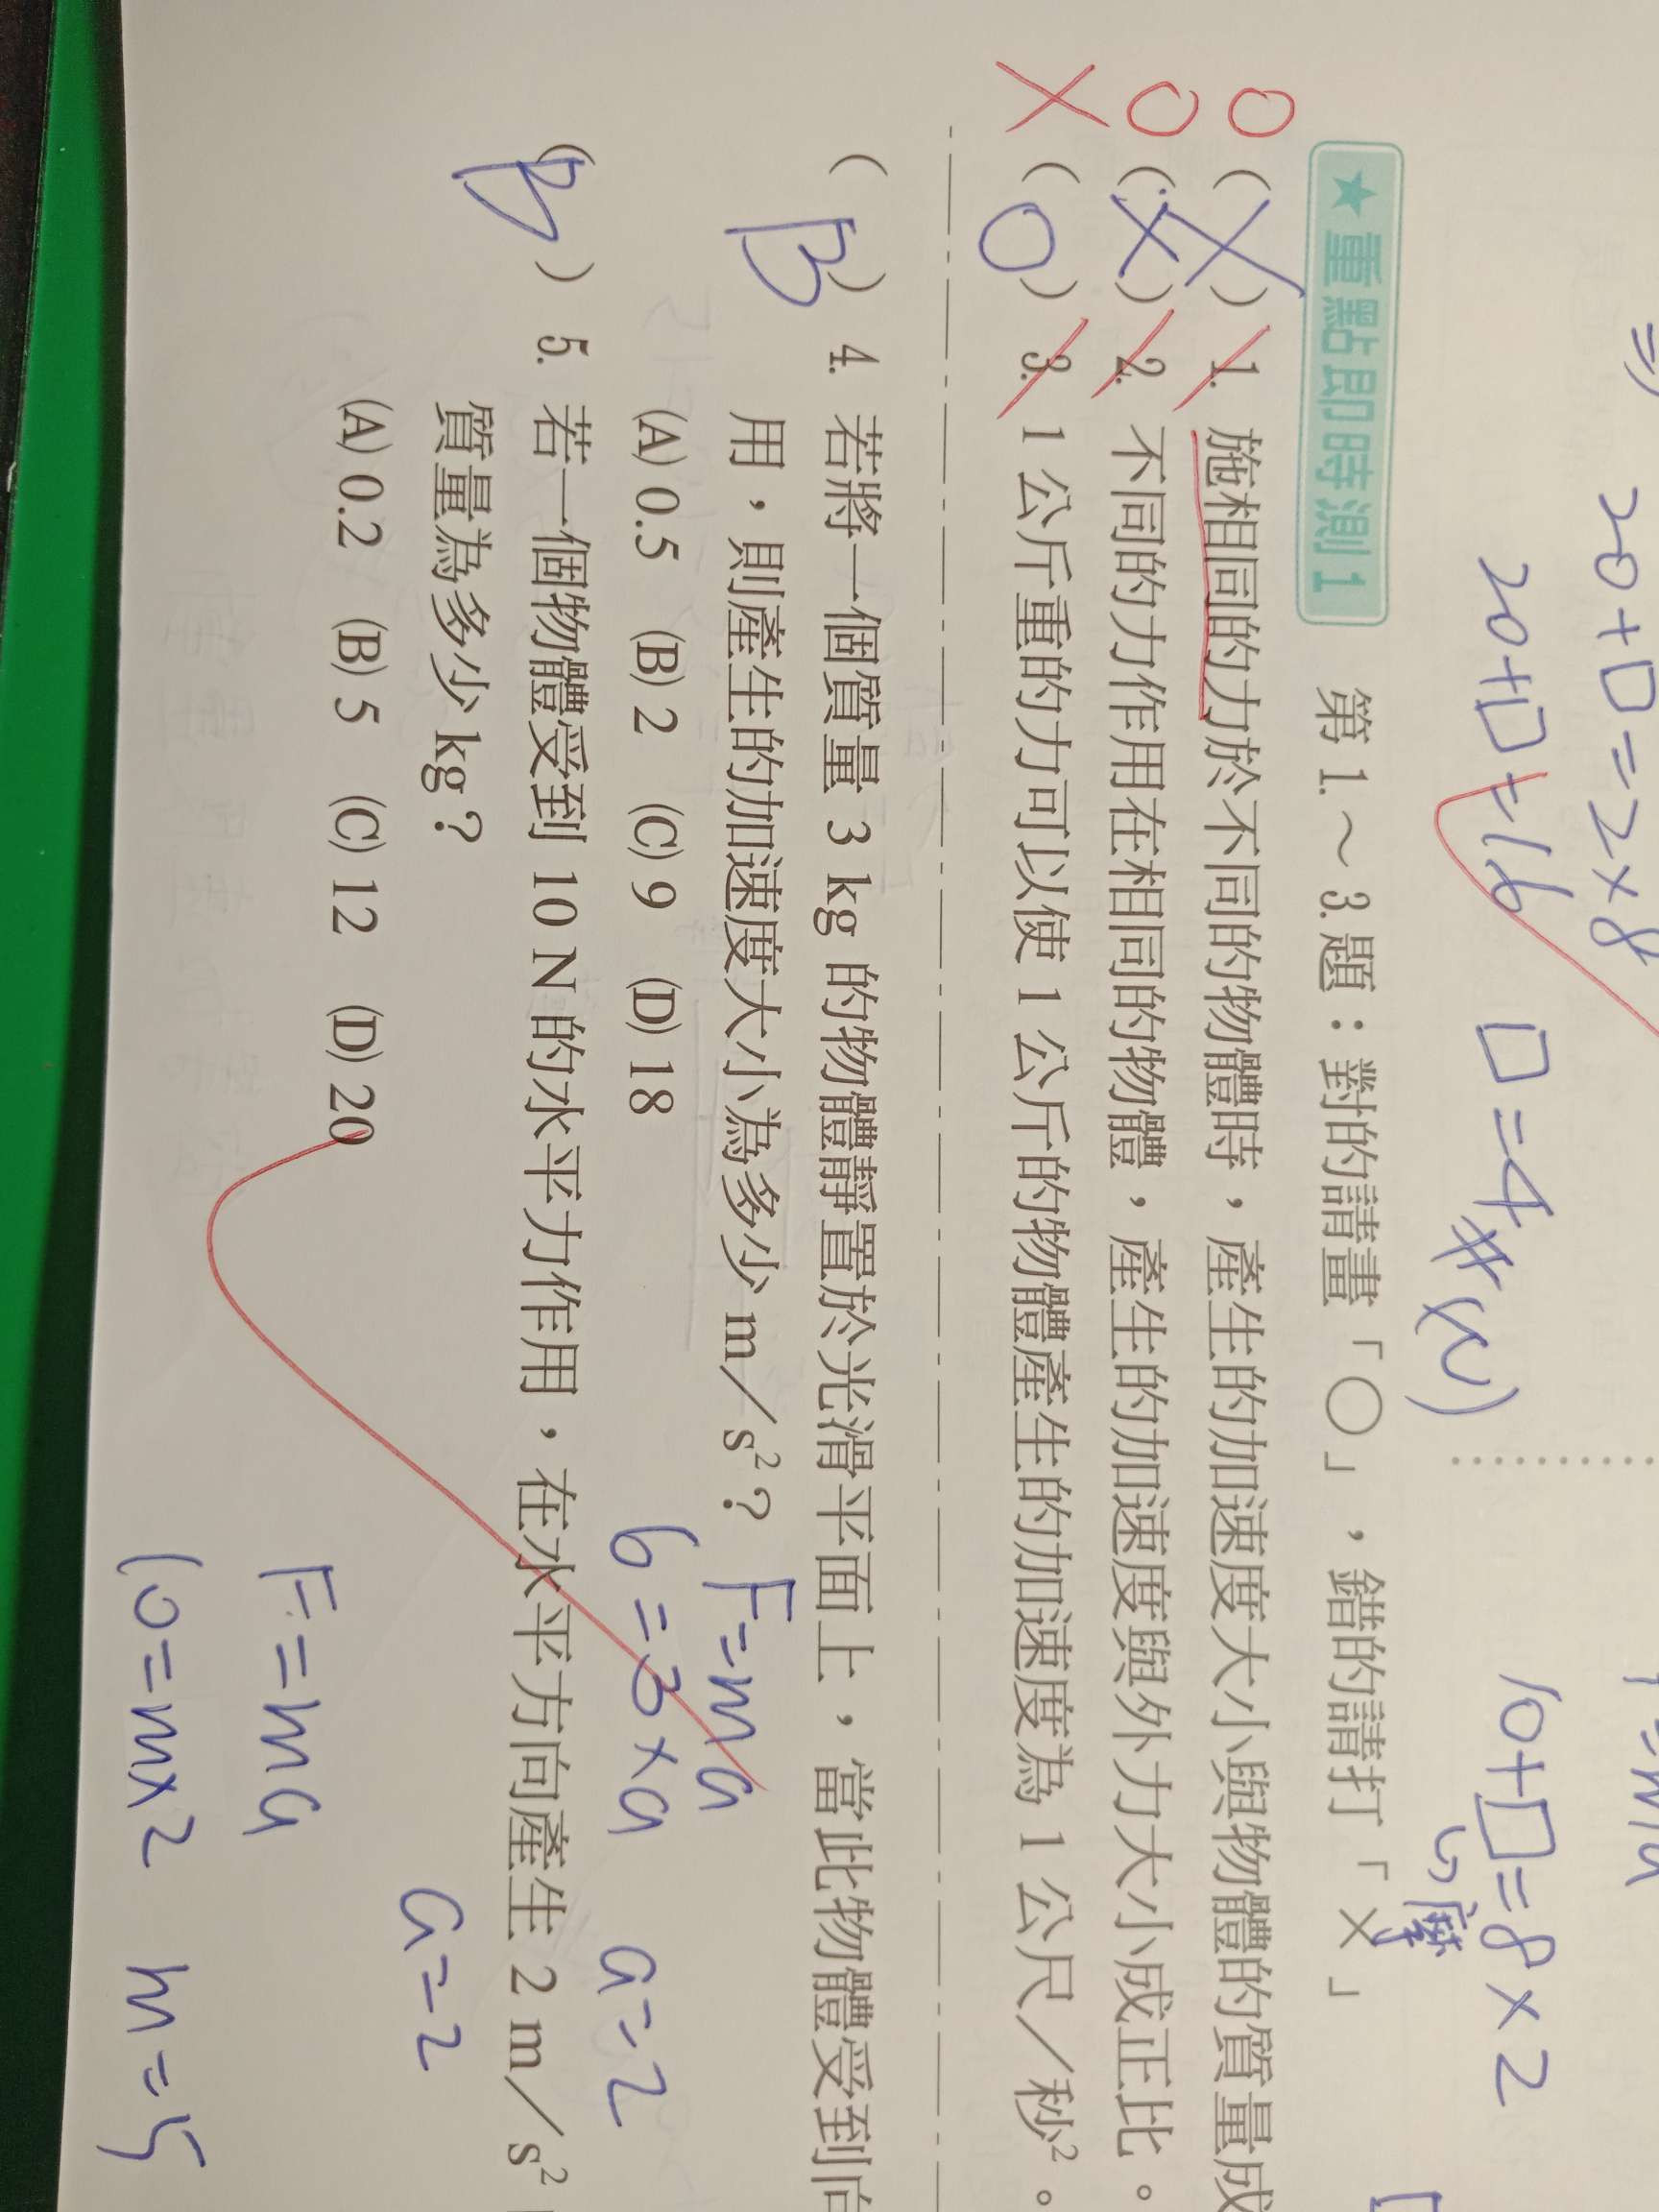 =>
20+□=2×8
20+□=16 □=4# (N)
F=ma
10+□=8×2
↳摩
★重點即時測 1 第 1.～3.題：對的請畫「○」，錯的請打「╳」
O (X) 1. 施相同的力於不同的物體時，產生的加速度大小與物體的質量成
O (X) 2. 不同的力作用在相同的物體，產生的加速度與外力大小成正比。
X (O) 3. 1 公斤重的力可以使 1 公斤的物體產生的加速度為 1 公尺／秒²。
(B) 4. 若將一個質量 3 kg 的物體靜置於光滑平面上，當此物體受到向
用，則產生的加速度大小為多少 m／s²？ F=ma
(A) 0.5 (B) 2 (C) 9 (D) 18 6=3×a a=2
(B) 5. 若一個物體受到 10 N 的水平力作用，在水平方向產生 2 m／s²
質量為多少 kg？ a=2
(A) 0.2 (B) 5 (C) 12 (D) 20
F=ma
10=m×2 m=5